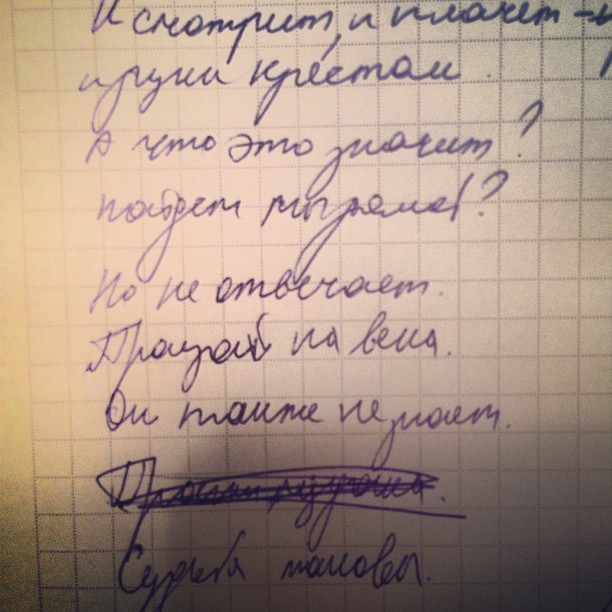 И смотрит, и плачет –
крестом.
А что это значит?
пойдет ?
Но не отвечает.
Прощай на века.
Он также не знает.
Судьба такова.